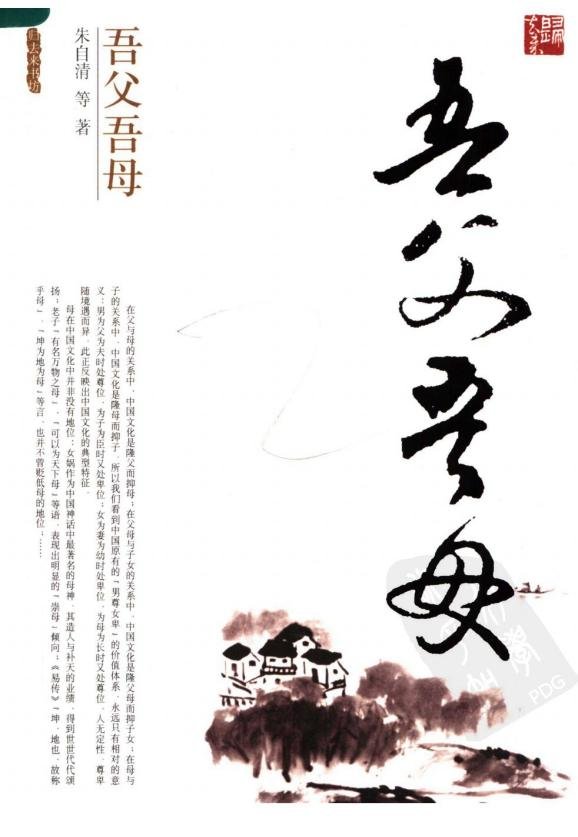 归去来书坊
歸去来
吾父吾母
朱自清 等 著
吾父吾母
在父与母的关系中，中国文化是隆父而抑母；在父母与子女的关系中，中国文化是隆父母而抑子女；在母与
子的关系中，中国文化是隆母而抑子，所以我们看到中国原有的“男尊女卑”的价值体系，永远只有相对的意
义：男为父为夫时处尊位，为子为臣时又处卑位；女为妻为幼时处卑位，为母为长时又处尊位，人无定性，尊卑
随境遇而异，此正反映出中国文化的典型特征。
母在中国文化中并非没有地位：女娲作为中国神话中最著名的母神，其造人与补天的业绩，得到世世代代颂
扬；老子“有名万物之母”、“可以为天下母”等语，表现出明显的“崇母”倾向；《易传》“坤，地也，故称
乎母”、“坤为地为母”等言，也并不曾贬低母的地位；……
PDG